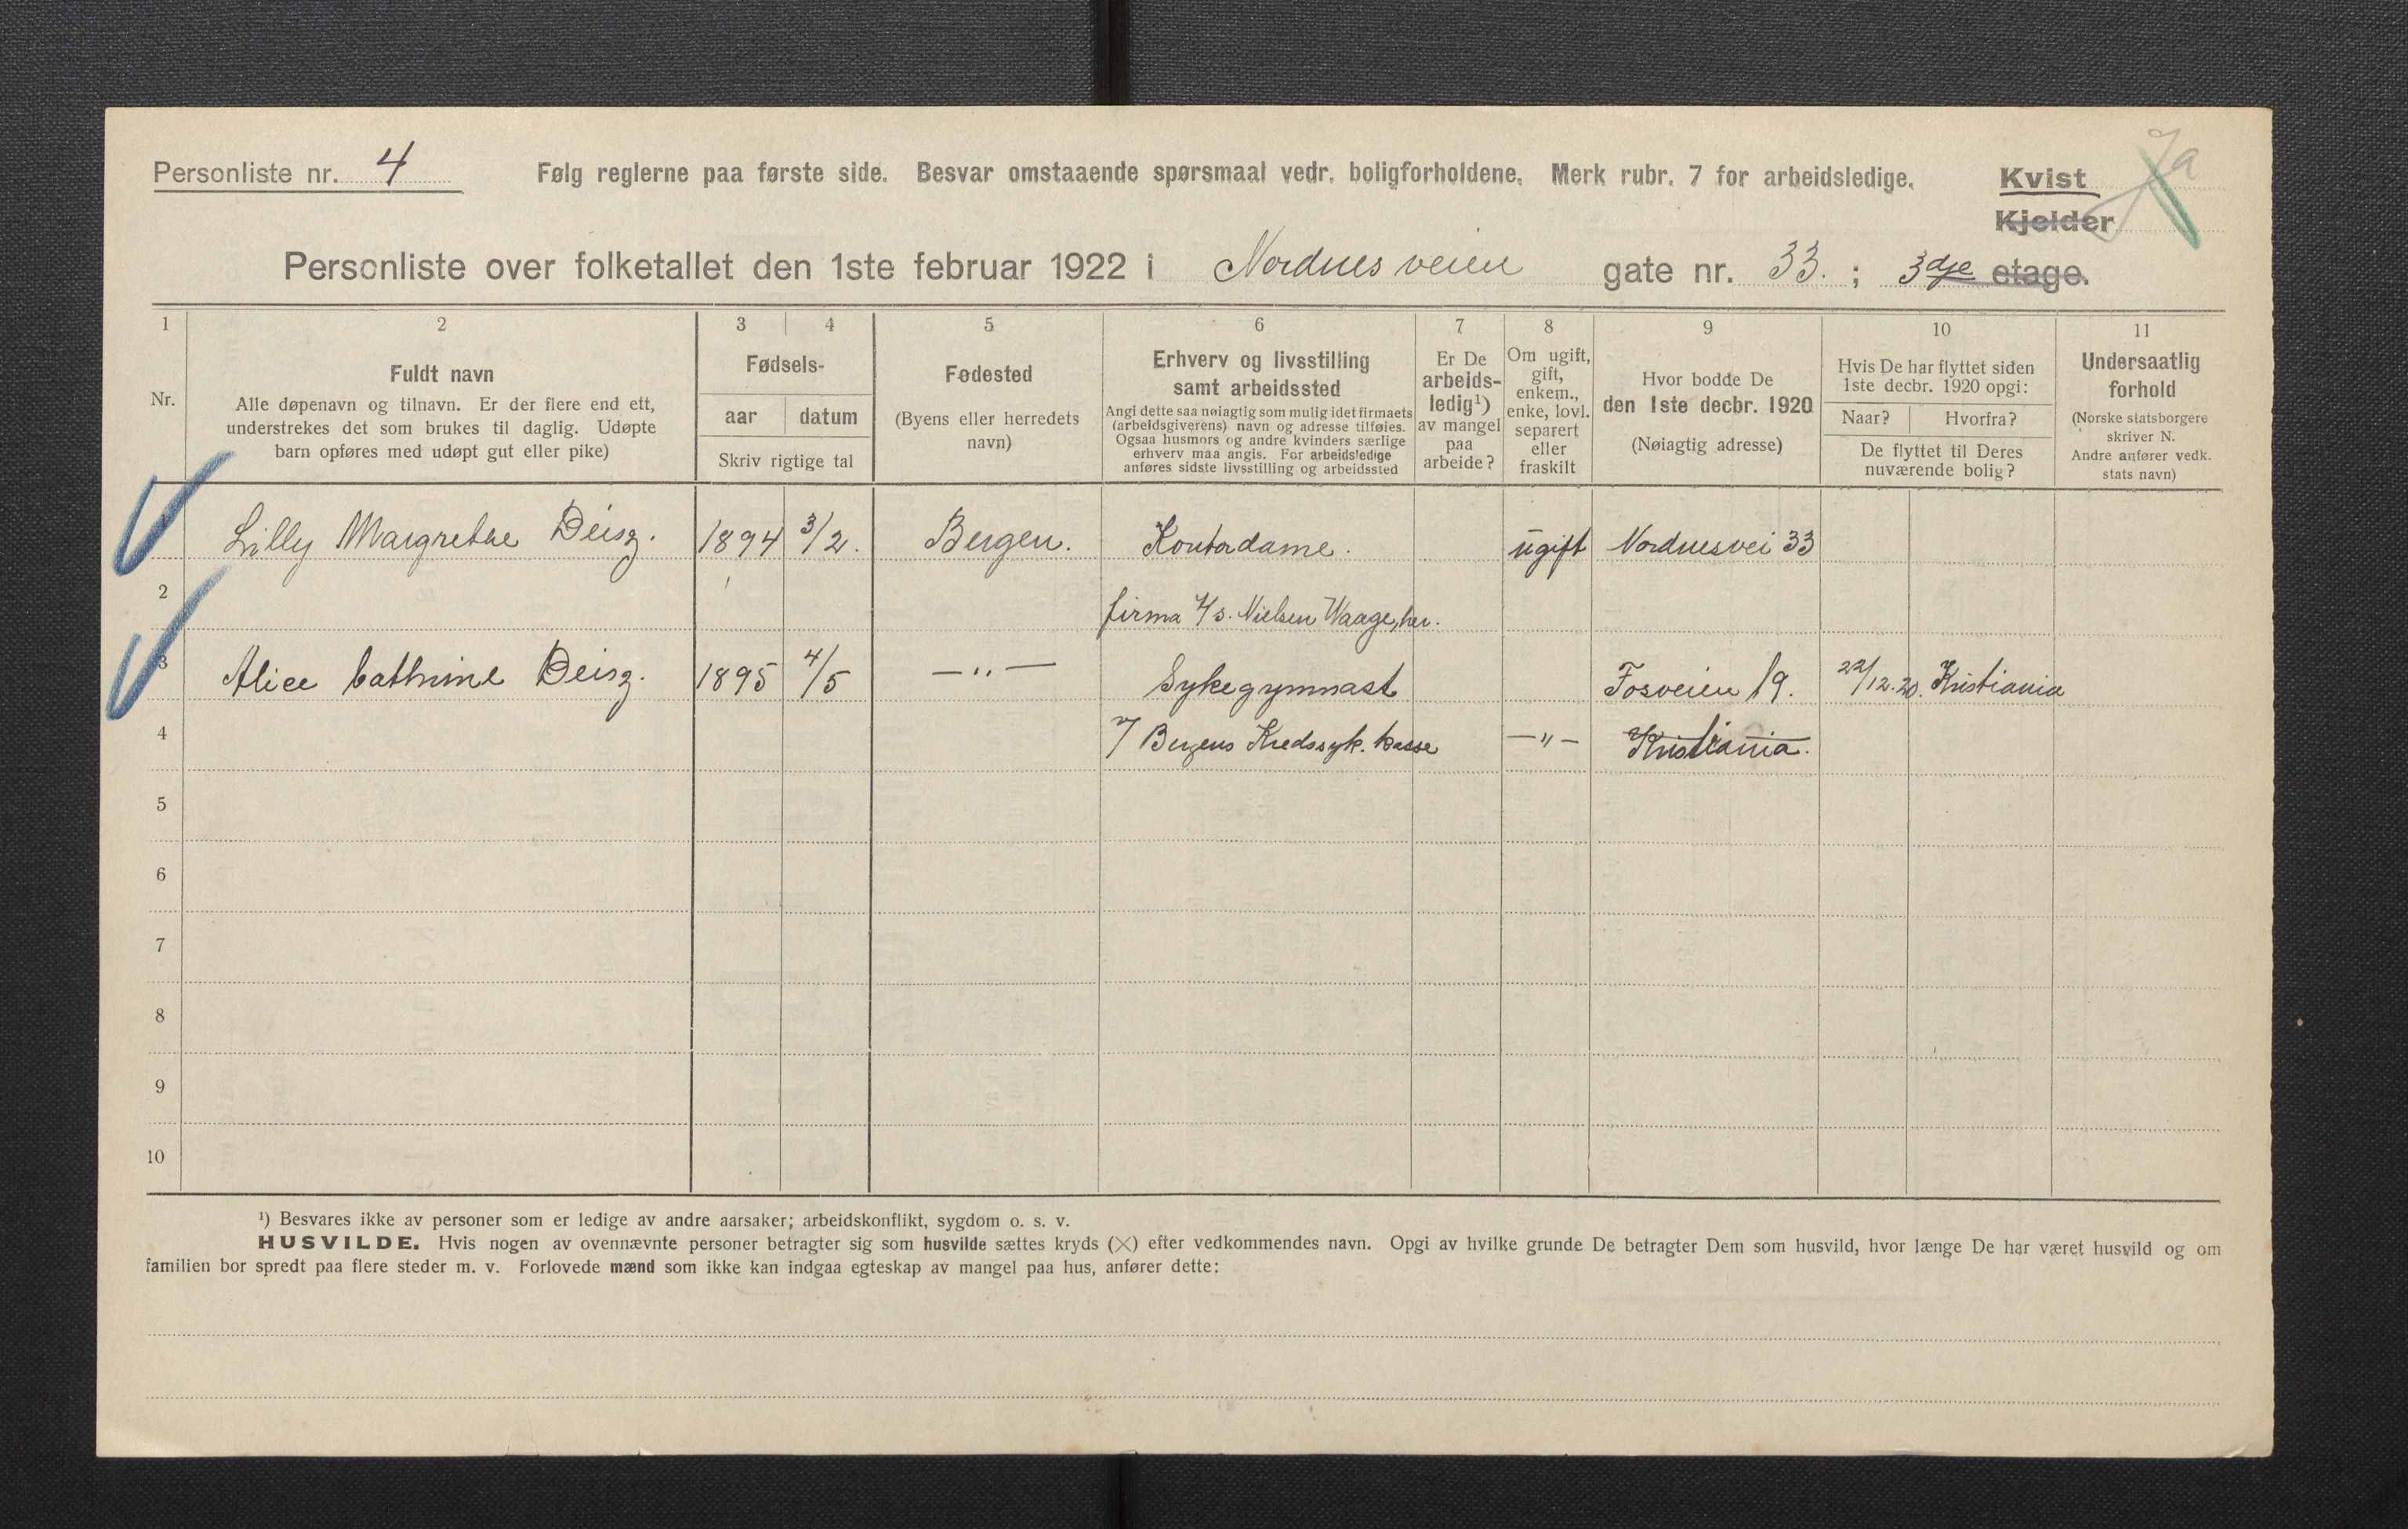 Personliste nr. 4
Følg reglerne paa første side. Besvar omstaaende spørsmaal vedr. boligforholdene. Merk rubr. 7 for arbeidsledige.
Kvist Ja
Kjelder
Personliste over folketallet den 1ste februar 1922 i Nordnesveien gate nr. 33. ; 3dje etage.
1 2 3 4 5 6 7 8 9 10 11
Nr.
Fuldt navn
Alle døpenavn og tilnavn. Er der flere end ett,
understrekes det som brukes til daglig. Udøpte
barn opføres med udøpt gut eller pike)
Fødsels-
aar datum
Skriv rigtige tal
Fødested
(Byens eller herredets
navn)
Erhverv og livsstilling
samt arbeidssted
Angi dette saa nøiagtig som mulig idet firmaets
(arbeidsgiverens) navn og adresse tilføies.
Ogsaa husmors og andre kvinders særlige
erhverv maa angis. For arbeidsledige
anføres sidste livsstilling og arbeidssted
Er De
arbeids-
ledig¹)
av mangel
paa
arbeide?
Om ugift,
gift,
enkem.,
enke, lovl.
separert
eller
fraskilt
Hvor bodde De
den 1ste decbr. 1920
(Nøiagtig adresse)
Hvis De har flyttet siden
1ste decbr. 1920 opgi:
Naar? Hvorfra?
De flyttet til Deres
nuværende bolig?
Undersaatlig
forhold
(Norske statsborgere
skriver N.
Andre anfører vedk.
stats navn)
Lilly Margrethe Deisz. 1894 3/2. Bergen. Kontordame. ugift Nordnesvei 33
2 firma A/S. Nielsen Waage, her.
3 Alice Cathrine Deisz. 1895 4/5 —"— Sykegymnast Fosveien 19. 22/12.20. Kristiania
4 v/ Bergens Kredssyk.kasse —"— Kristiania.
5
6
7
8
9
10
¹) Besvares ikke av personer som er ledige av andre aarsaker; arbeidskonflikt, sygdom o. s. v.
HUSVILDE. Hvis nogen av ovennævnte personer betragter sig som husvilde sættes kryds (×) efter vedkommendes navn. Opgi av hvilke grunde De betragter Dem som husvild, hvor længe De har været husvild og om
familien bor spredt paa flere steder m. v. Forlovede mænd som ikke kan indgaa egteskap av mangel paa hus, anfører dette: